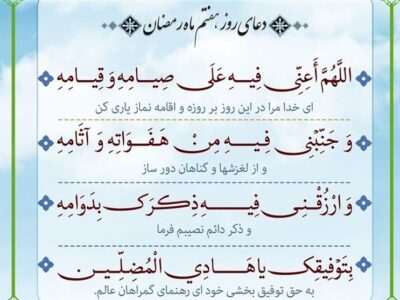 دعای روز هفتم ماه رمضان
اللَّهُمَّ أَعِنِّی فِیهِ عَلَی صِیَامِهِ وَ قِیَامِهِ
ای خدا مرا در این روز بر روزه و اقامه نماز یاری کن
وَ جَنِّبْنِی فِیهِ مِنْ هَفَوَاتِهِ وَ آثَامِهِ
و از لغزشها و گناهان دور ساز
وَ ارْزُقْنِی فِیهِ ذِکرَکَ بِدَوَامِهِ
و ذکر دائم نصیبم فرما
بِتَوْفِیقِکَ یا هَادِیَ الْمُضِلِّینَ
به حق توفیق بخشی خود ای رهنمای گمراهان عالم.